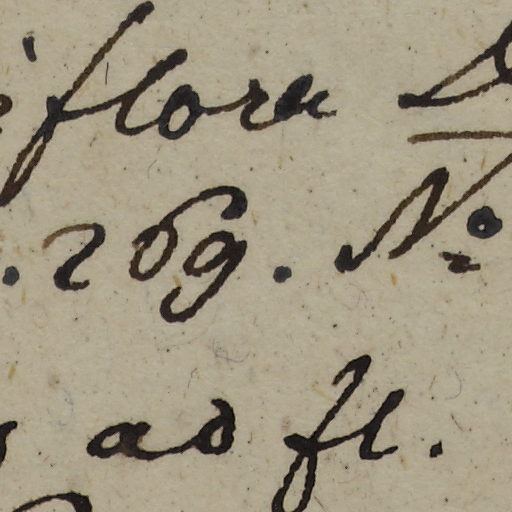 iflora
. 269. No
ad fl.